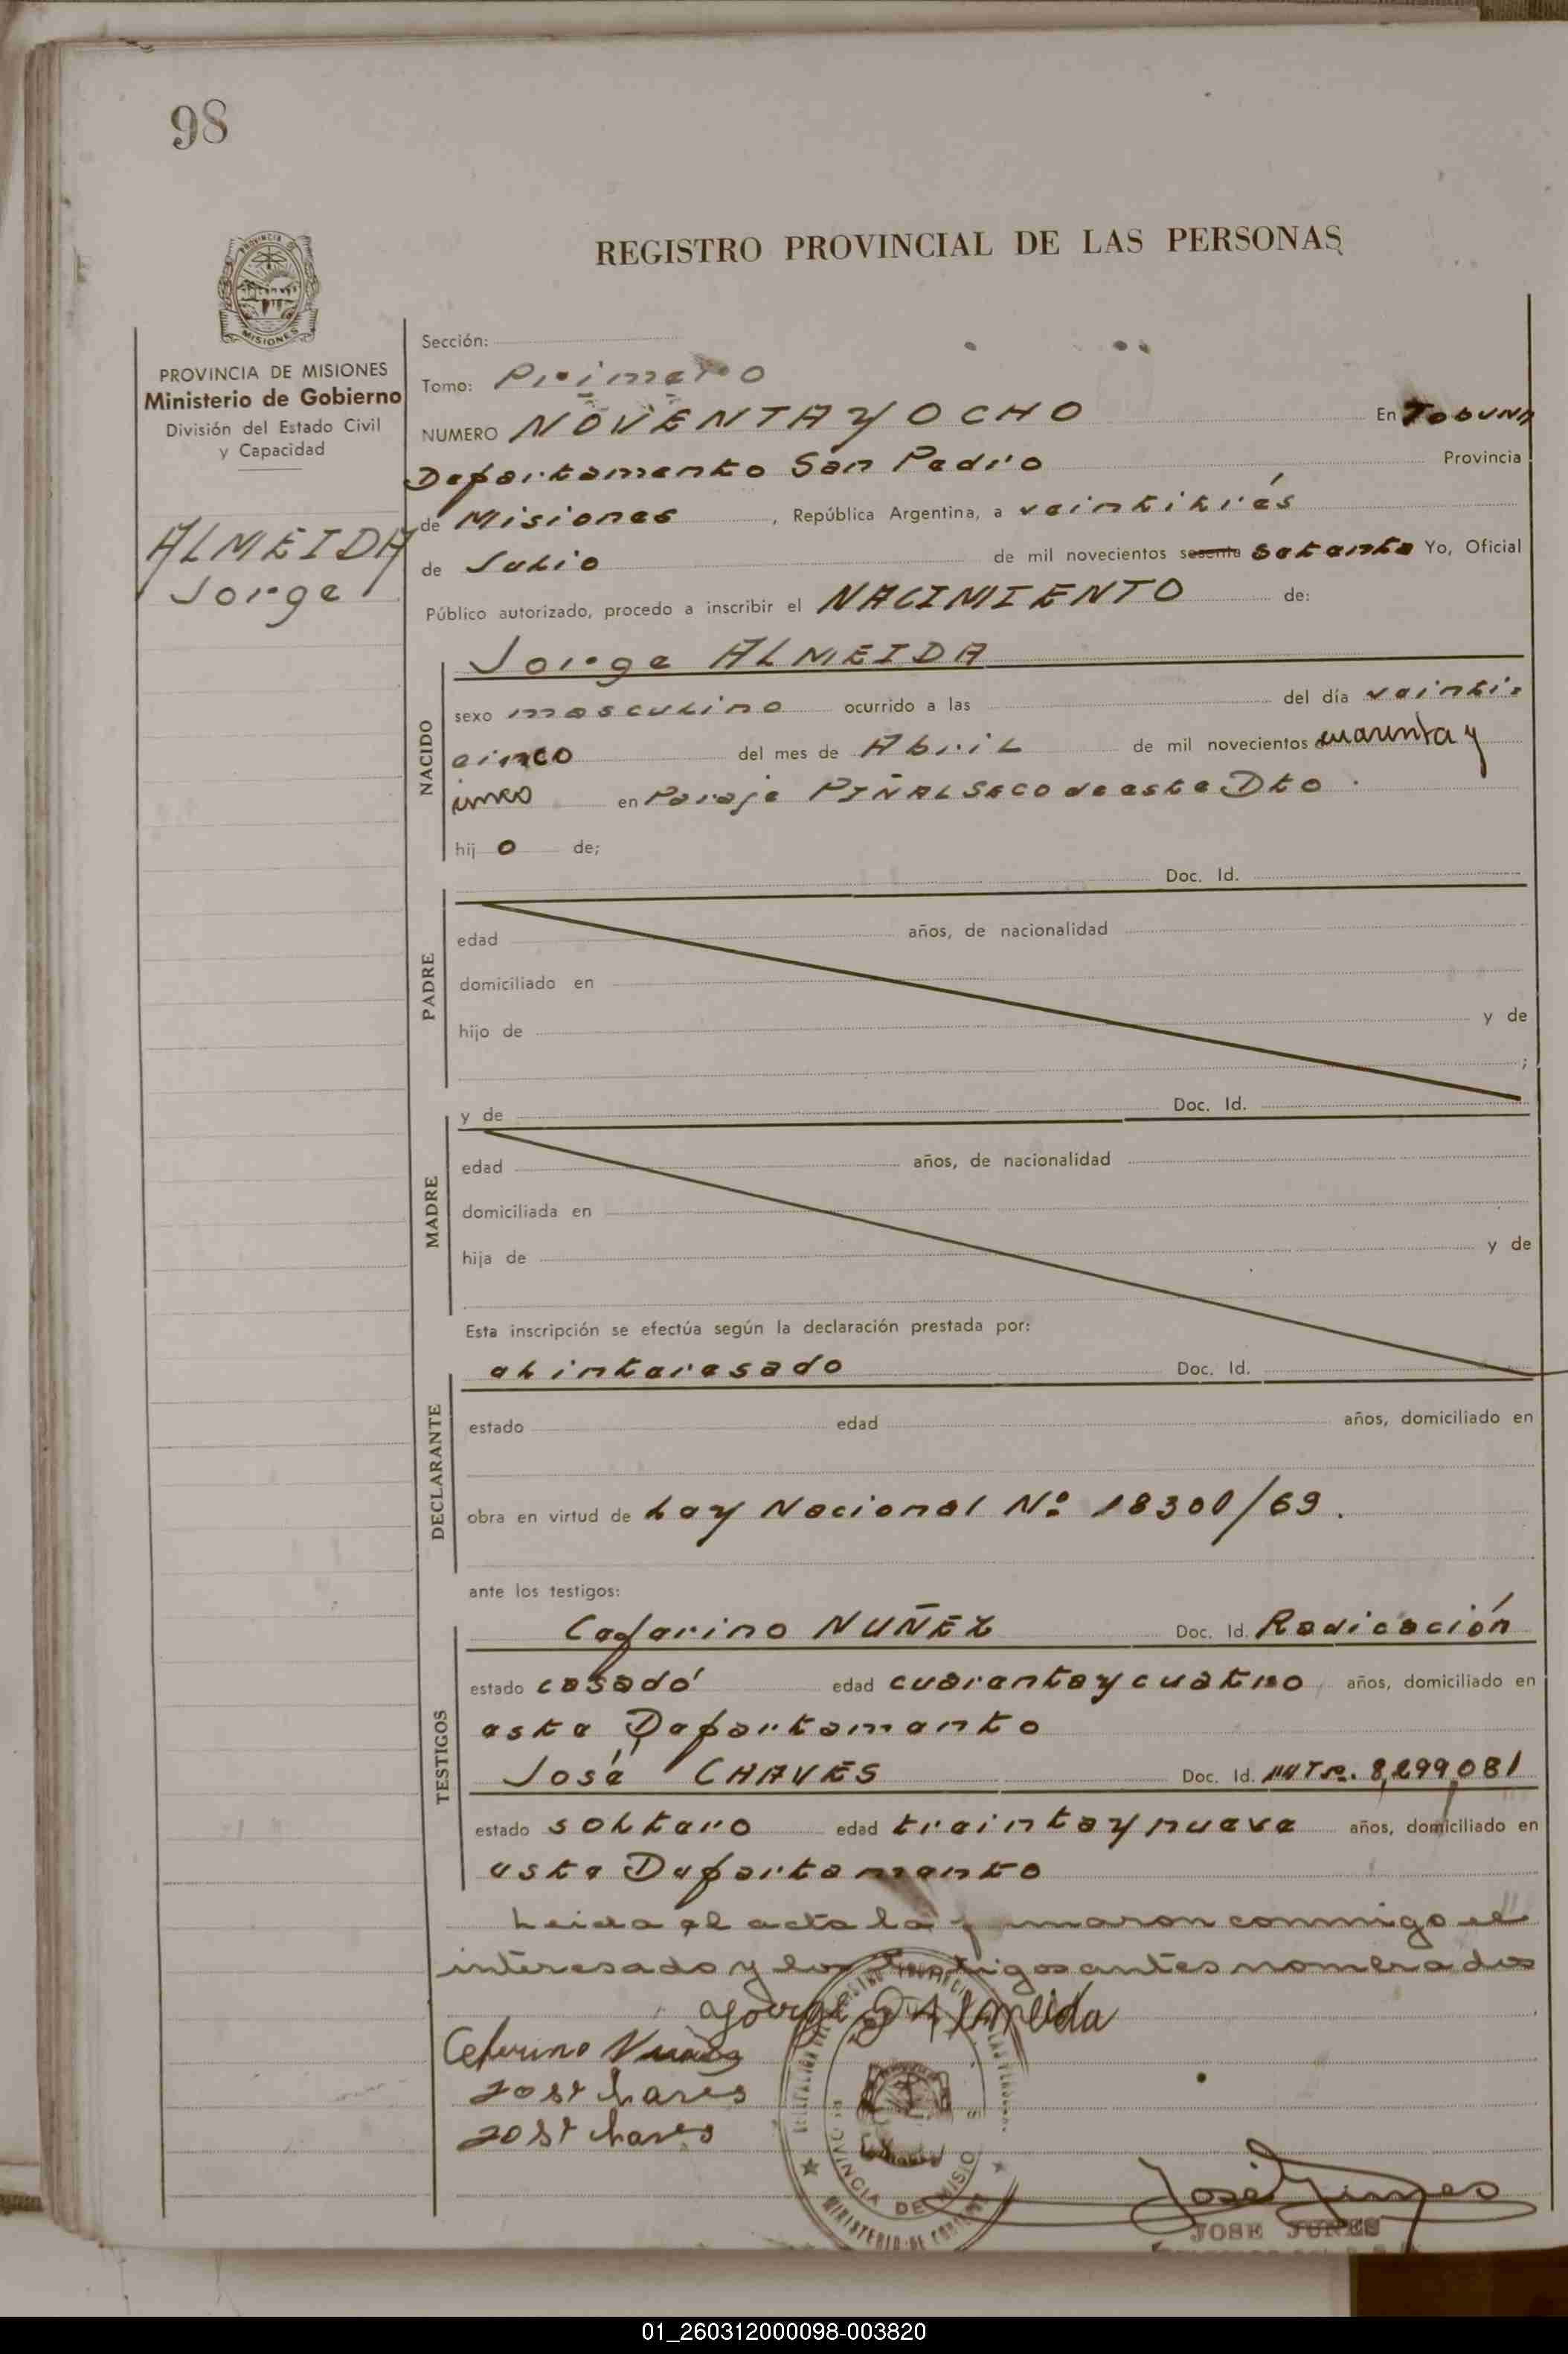 98
REGISTRO PROVINCIAL DE LAS PERSONAS
MISIONES
PROVINCIA DE MISIONES
Ministerio de Gobierno
División del Estado Civil
y Capacidad
ALMEIDA
Jorge
Sección:
Tomo: Primero
NUMERO NOVENTA Y OCHO En TOBUNA
Departamento San Pedro Provincia
de Misiones, República Argentina, a veintitrés
de Julio de mil novecientos sesenta setenta Yo, Oficial
Público autorizado, procedo a inscribir el NACIMIENTO de:
NACIDO
Jorge ALMEIDA
sexo masculino ocurrido a las del día veinti-
cinco del mes de Abril de mil novecientos cuarenta y
cinco en Paraje PIÑAL SECO de este Dto.
hij o de;
PADRE
Doc. Id.
edad años, de nacionalidad
domiciliado en
hijo de y de
;
MADRE
y de Doc. Id.
edad años, de nacionalidad
domiciliada en
hija de y de
Esta inscripción se efectúa según la declaración prestada por:
DECLARANTE
el interesado Doc. Id.
estado edad años, domiciliado en
obra en virtud de Ley Nacional Nº 18300/69.
ante los testigos:
TESTIGOS
Ceferino NUÑEZ Doc. Id. Radicación
estado casado edad cuarenta y cuatro años, domiciliado en
este Departamento
José CHAVES Doc. Id. 8,299,081
estado soltero edad treinta y nueve años, domiciliado en
este Departamento
Leida el acta la firmaron conmigo el
interesado y los testigos antes nombrados
Jorge Almeida
Ceferino Nuñez
José Chaves
José Chaves
PROVINCIA DE MISIONES
MINISTERIO DE GOBIERNO
JOSE
01_260312000098-003820